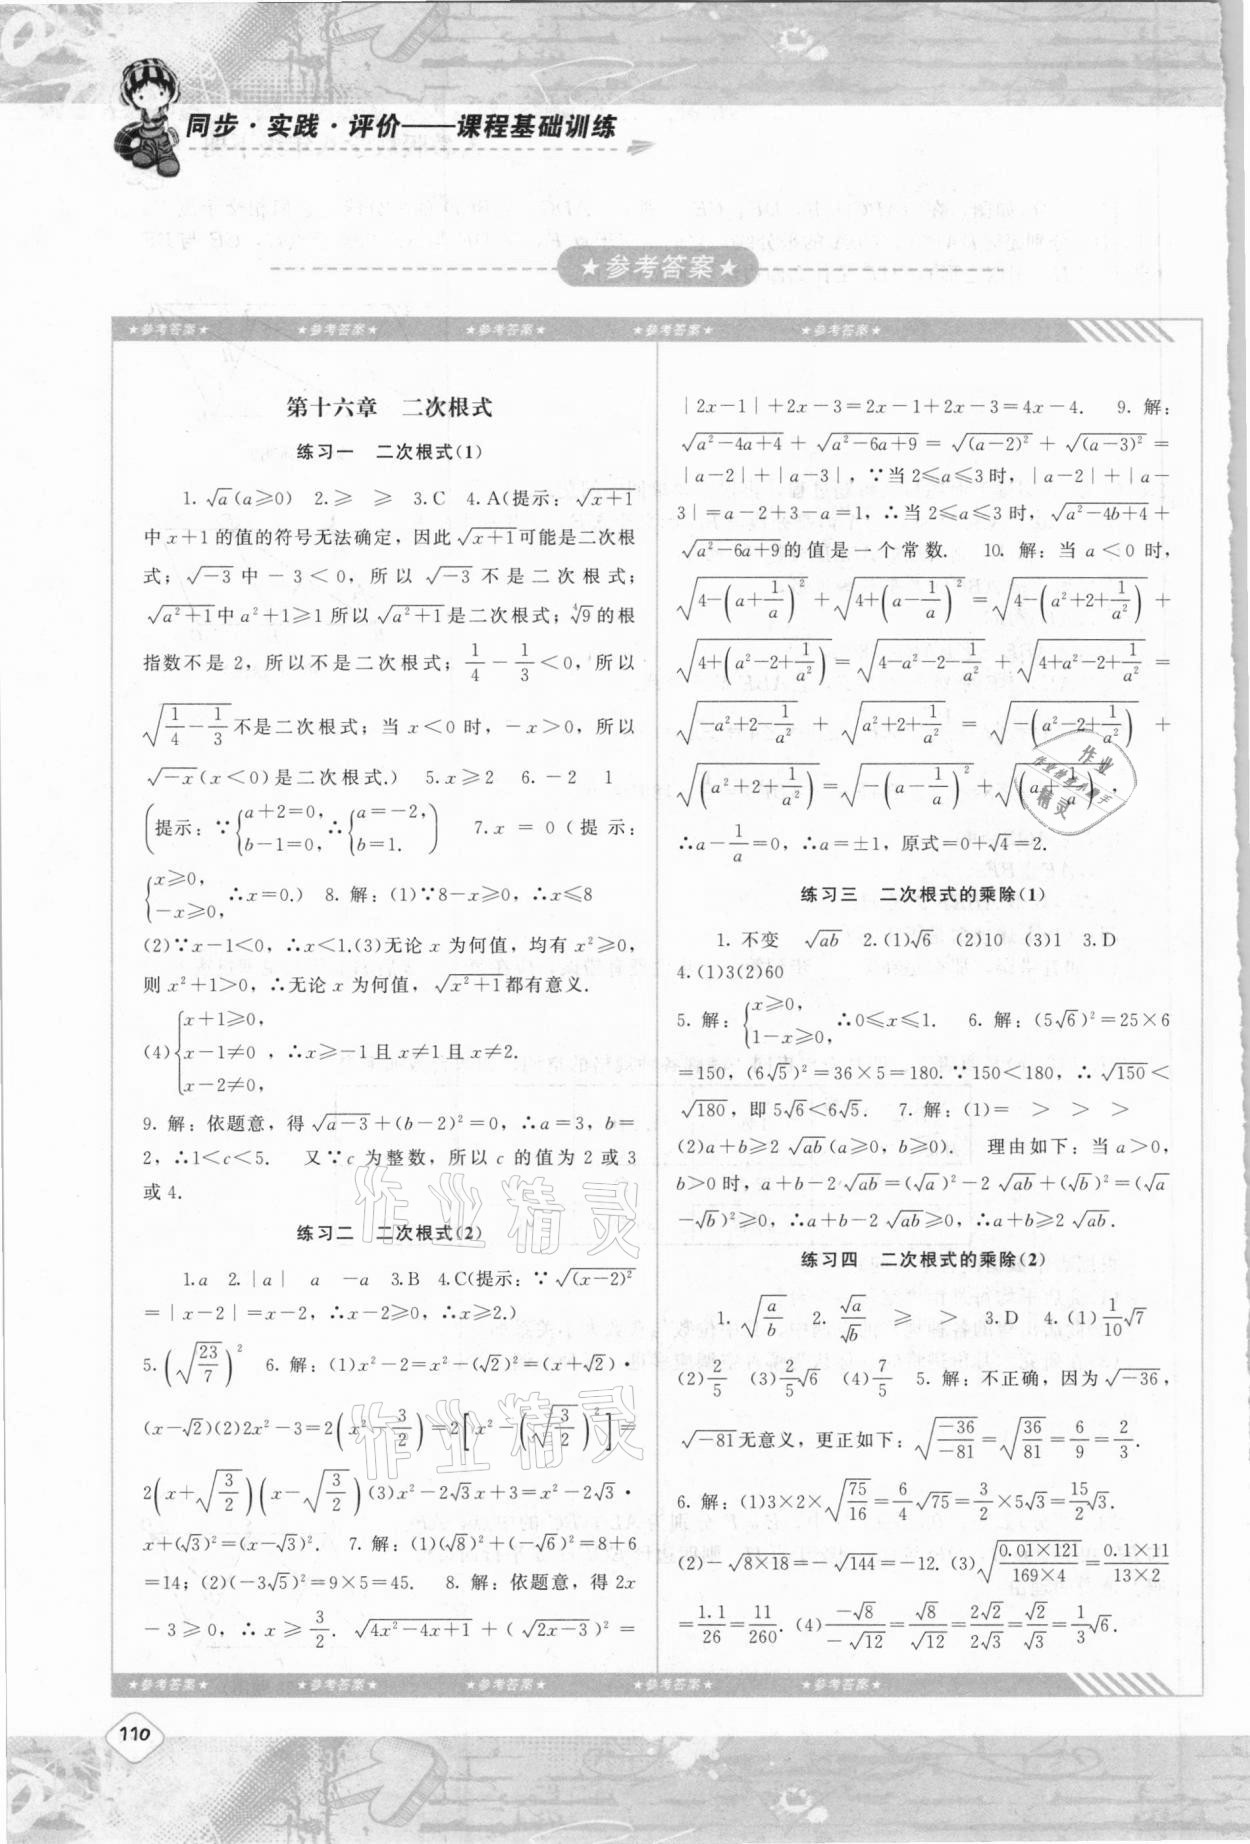 同步·实践·评价——课程基础训练
★参考答案★
★参考答案★ ★参考答案★ ★参考答案★ ★参考答案★ ★参考答案★
第十六章 二次根式
练习一 二次根式(1)
1. √a(a≥0) 2.≥ ≥ 3.C 4.A(提示:√(x+1)
中x+1的值的符号无法确定,因此√(x+1)可能是二次根
式;√(-3)中-3<0,所以√(-3)不是二次根式;
√(a²+1)中a²+1≥1所以√(a²+1)是二次根式;∜9的根
指数不是2,所以不是二次根式;1/4-1/3<0,所以
√(1/4-1/3)不是二次根式;当x<0时,-x>0,所以
√(-x)(x<0)是二次根式.) 5.x≥2 6.-2 1
(提示:∵{a+2=0, b-1=0,∴{a=-2, b=1.) 7.x=0(提示:
{x≥0, -x≥0,∴x=0.) 8.解:(1)∵8-x≥0,∴x≤8
(2)∵x-1<0,∴x<1.(3)无论x为何值,均有x²≥0,
则x²+1>0,∴无论x为何值,√(x²+1)都有意义.
(4){x+1≥0, x-1≠0, x-2≠0,∴x≥-1且x≠1且x≠2.
9.解:依题意,得√(a-3)+(b-2)²=0,∴a=3,b=
2,∴1<c<5. 又∵c为整数,所以c的值为2或3
或4.
练习二 二次根式(2)
1.a 2.|a| a -a 3.B 4.C(提示:∵√(x-2)²
=|x-2|=x-2,∴x-2≥0,∴x≥2.)
5.(√(23/7))² 6.解:(1)x²-2=x²-(√2)²=(x+√2)·
(x-√2)(2)2x²-3=2(x²-3/2)=2[x²-(√(3/2))²]=
2(x+√(3/2))(x-√(3/2))(3)x²-2√3x+3=x²-2√3·
x+(√3)²=(x-√3)². 7.解:(1)(√8)²+(-√6)²=8+6
=14;(2)(-3√5)²=9×5=45. 8.解:依题意,得2x
-3≥0,∴x≥3/2. √(4x²-4x+1)+(√(2x-3))²=
|2x-1|+2x-3=2x-1+2x-3=4x-4. 9.解:
√(a²-4a+4)+√(a²-6a+9)=√(a-2)²+√(a-3)²=
|a-2|+|a-3|,∵当2≤a≤3时,|a-2|+|a-
3|=a-2+3-a=1,∴当2≤a≤3时,√(a²-4b+4)+
√(a²-6a+9)的值是一个常数. 10.解:当a<0时,
√(4-(a+1/a)²)+√(4+(a-1/a)²)=√(4-(a²+2+1/a²))+
√(4+(a²-2+1/a²))=√(4-a²-2-1/a²)+√(4+a²-2+1/a²)=
√(-a²+2-1/a²)+√(a²+2+1/a²)=√(-(a²-2+1/a²))+
√((a²+2+1/a²))=√(-(a-1/a)²)+√((a+1/a)²),
∴a-1/a=0,∴a=±1,原式=0+√4=2.
练习三 二次根式的乘除(1)
1.不变 √(ab) 2.(1)√6 (2)10 (3)1 3.D
4.(1)3(2)60
5.解:{x≥0, 1-x≥0,∴0≤x≤1. 6.解:(5√6)²=25×6
=150,(6√5)²=36×5=180.∵150<180,∴√150<
√180,即5√6<6√5. 7.解:(1)= > > >
(2)a+b≥2√(ab)(a≥0,b≥0). 理由如下:当a>0,
b>0时,a+b-2√(ab)=(√a)²-2√(ab)+(√b)²=(√a
-√b)²≥0,∴a+b-2√(ab)≥0,∴a+b≥2√(ab).
练习四 二次根式的乘除(2)
1.√(a/b) 2.√a/√b ≥ > 3.D 4.(1)1/10√7
(2)2/5 (3)2/5√6 (4)7/5 5.解:不正确,因为√(-36),
√(-81)无意义,更正如下:√(-36/-81)=√(36/81)=6/9=2/3.
6.解:(1)3×2×√(75/16)=6/4√75=3/2×5√3=15/2√3.
(2)-√(8×18)=-√144=-12.(3)√(0.01×121/169×4)=0.1×11/13×2
=1.1/26=11/260.(4)-√8/-√12=√8/√12=2√2/2√3=√2/√3=1/3√6.
★参考答案★ ★参考答案★ ★参考答案★ ★参考答案★ ★参考答案★
110
作业精灵
作业精灵
作业
精灵